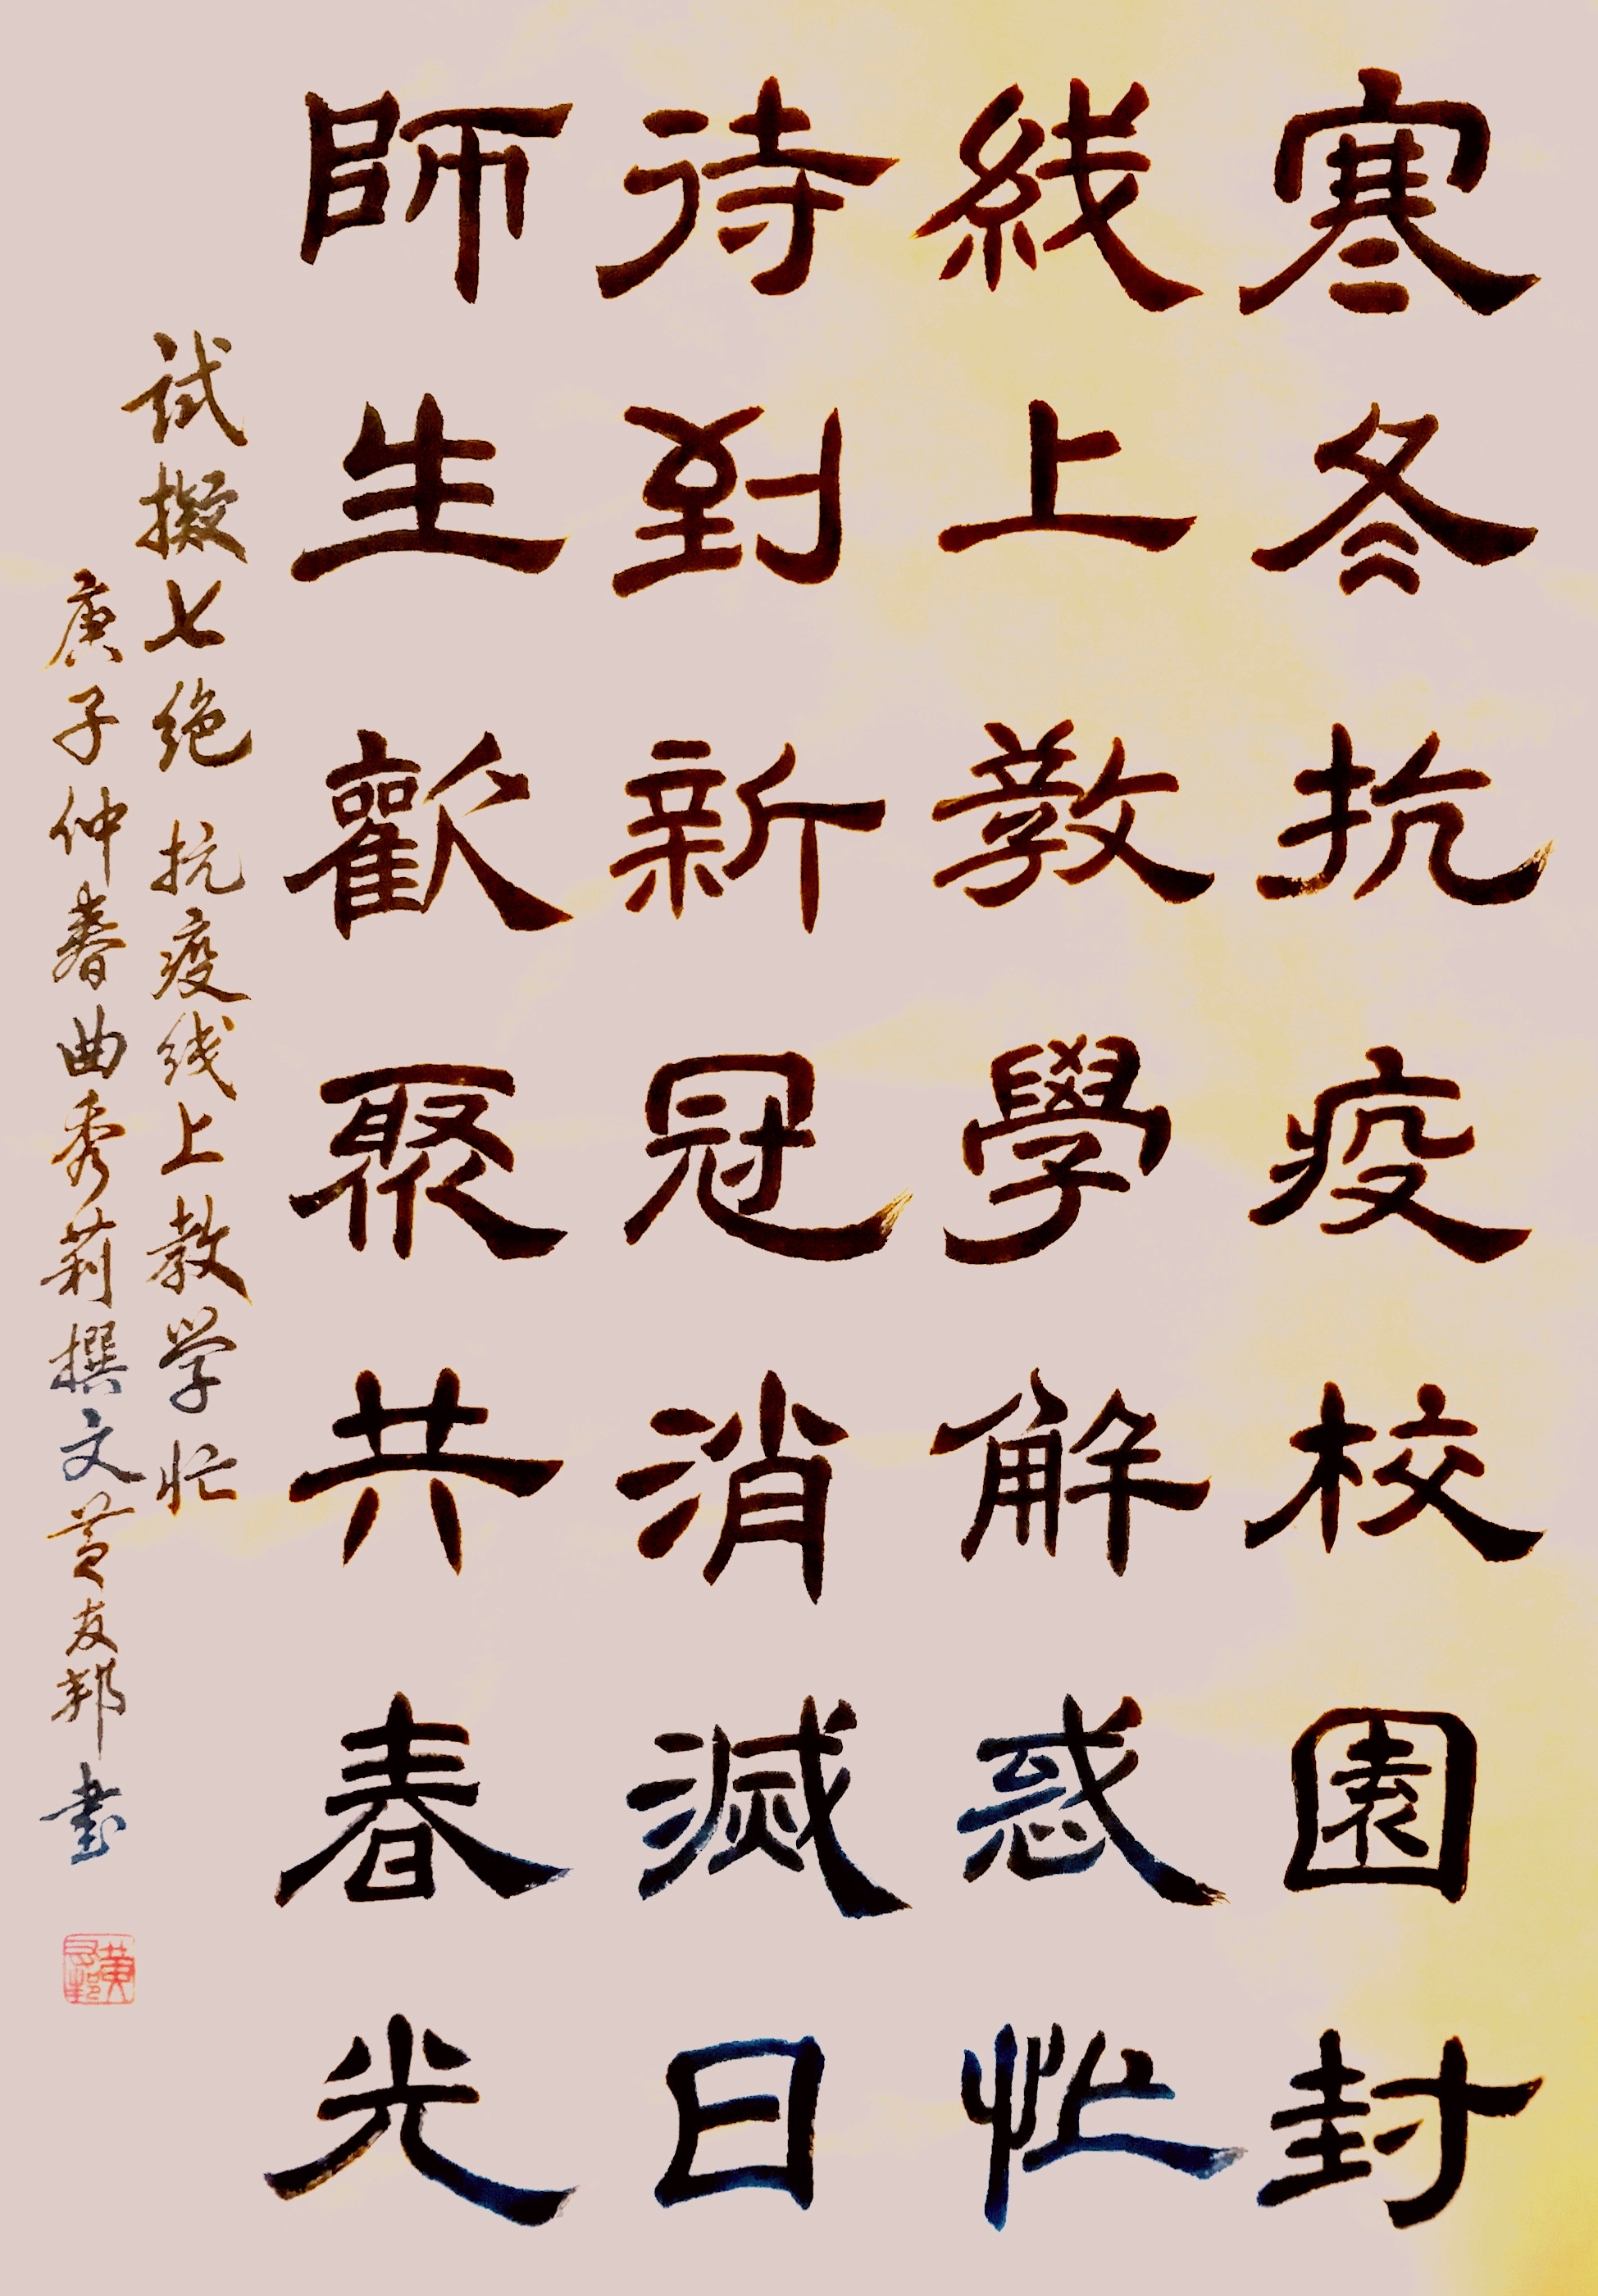 寒冬抗疫校園封
线上教學解惑忙
待到新冠消滅日
師生歡聚共春光
试擬七绝 抗疫线上教学忙
庚子仲春曲秀莉撰文黄友邦书
黄友邦